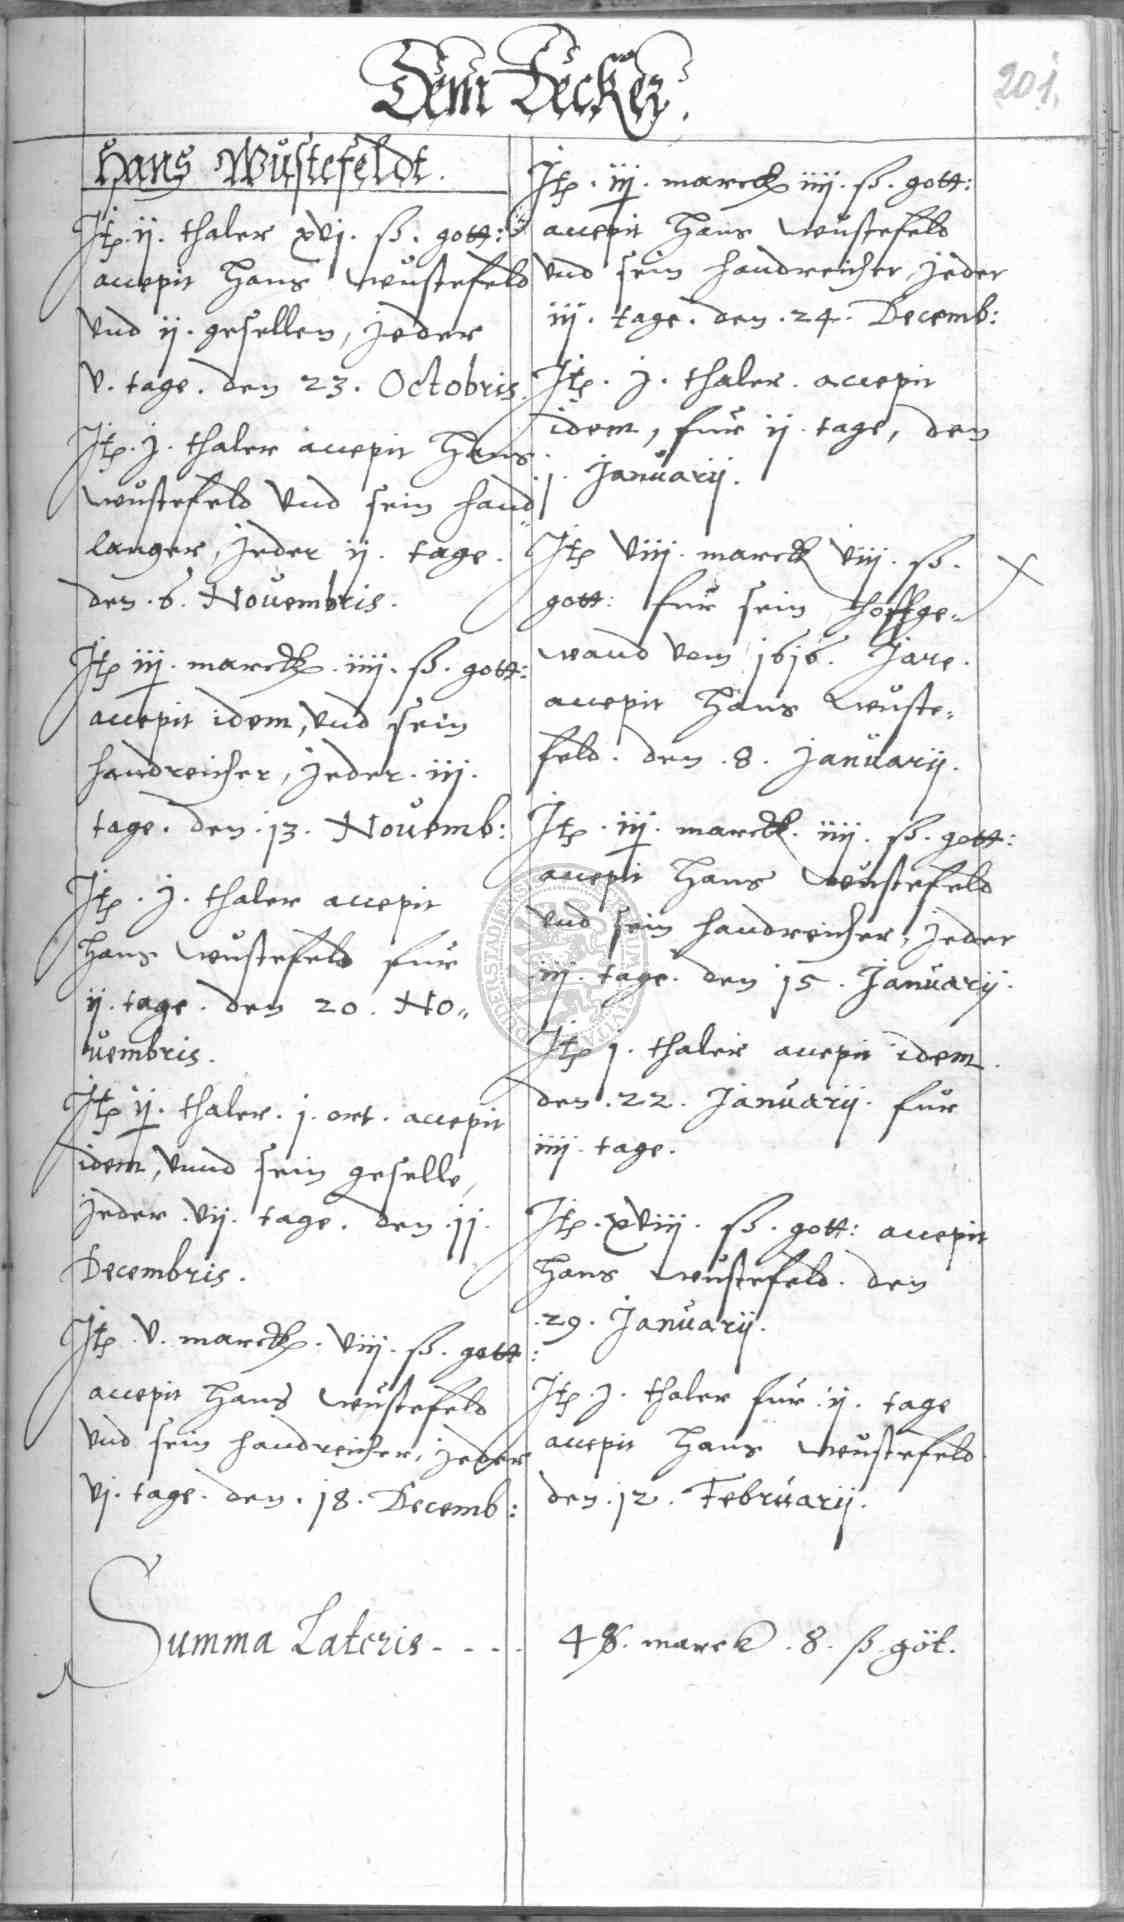 Dem Decker.
201.
Hans Wůstefeldt.
Itē. ij. thaler xvj. ß. gott:
accepit Hans Wůstefeld
vnd ij. gesellen, jeder
v. tage. den 23. Octobris.
Itē. j. thaler accepit Hans
Wůstefeld vnd sein hand
langer, jeder ij. tage.
den. 6. Nouembris.
Itē iij. marck. iiij. ß. gott:
accepit idem, vnd sein
handreicher, jeder. iij.
tage. den. 13. Nouemb:
Itē. j. thaler accepit
Hans Wůstefeld fur
ij. tage. den 20. No„
uembris.
Itē ij. thaler. j. ort. accepit
idem, vnnd sein geselle,
jeder. vij. tage. den. 11.
Decembris.
Itē. v. marck. viij. ß. gott:
accepit Hans Wůstefeld
vnd sein handreicher, jeder
vj. tage. den. 18. Decemb:
Itē. iij. marck iiij. ß. gott:
accepit Hans Wůstefeld
vnd sein handreicher, jeder
iij. tage. den. 24. Decemb:
Itē. j. thaler. accepit
idem, fur ij. tage, den
1. Januarij.
Itē viij. marck viij. ß.
gott: fur sein hoffge„
wand vom 1616. Jare.
accepit Hans Wůste„
feld. den. 8. Januarij.
Itē. iij. marck. iiij. ß. gott:
accepit Hans Wůstefeld
vnd sein handreicher, jeder
iij. tage. den 15. Januarij.
Itē j. thaler accepit idem.
den. 22. Januarij. fur
iiij. tage.
Itē. xviij. ß. gott: accepit
Hans Wůstefeld. den
.29. Januarij.
Itē. j. thaler fur ij. tage
accepit Hans Wůstefeld.
den. 12. Februarij.
Summa Lateris - - - - 48. marck. 8. ß. göt.